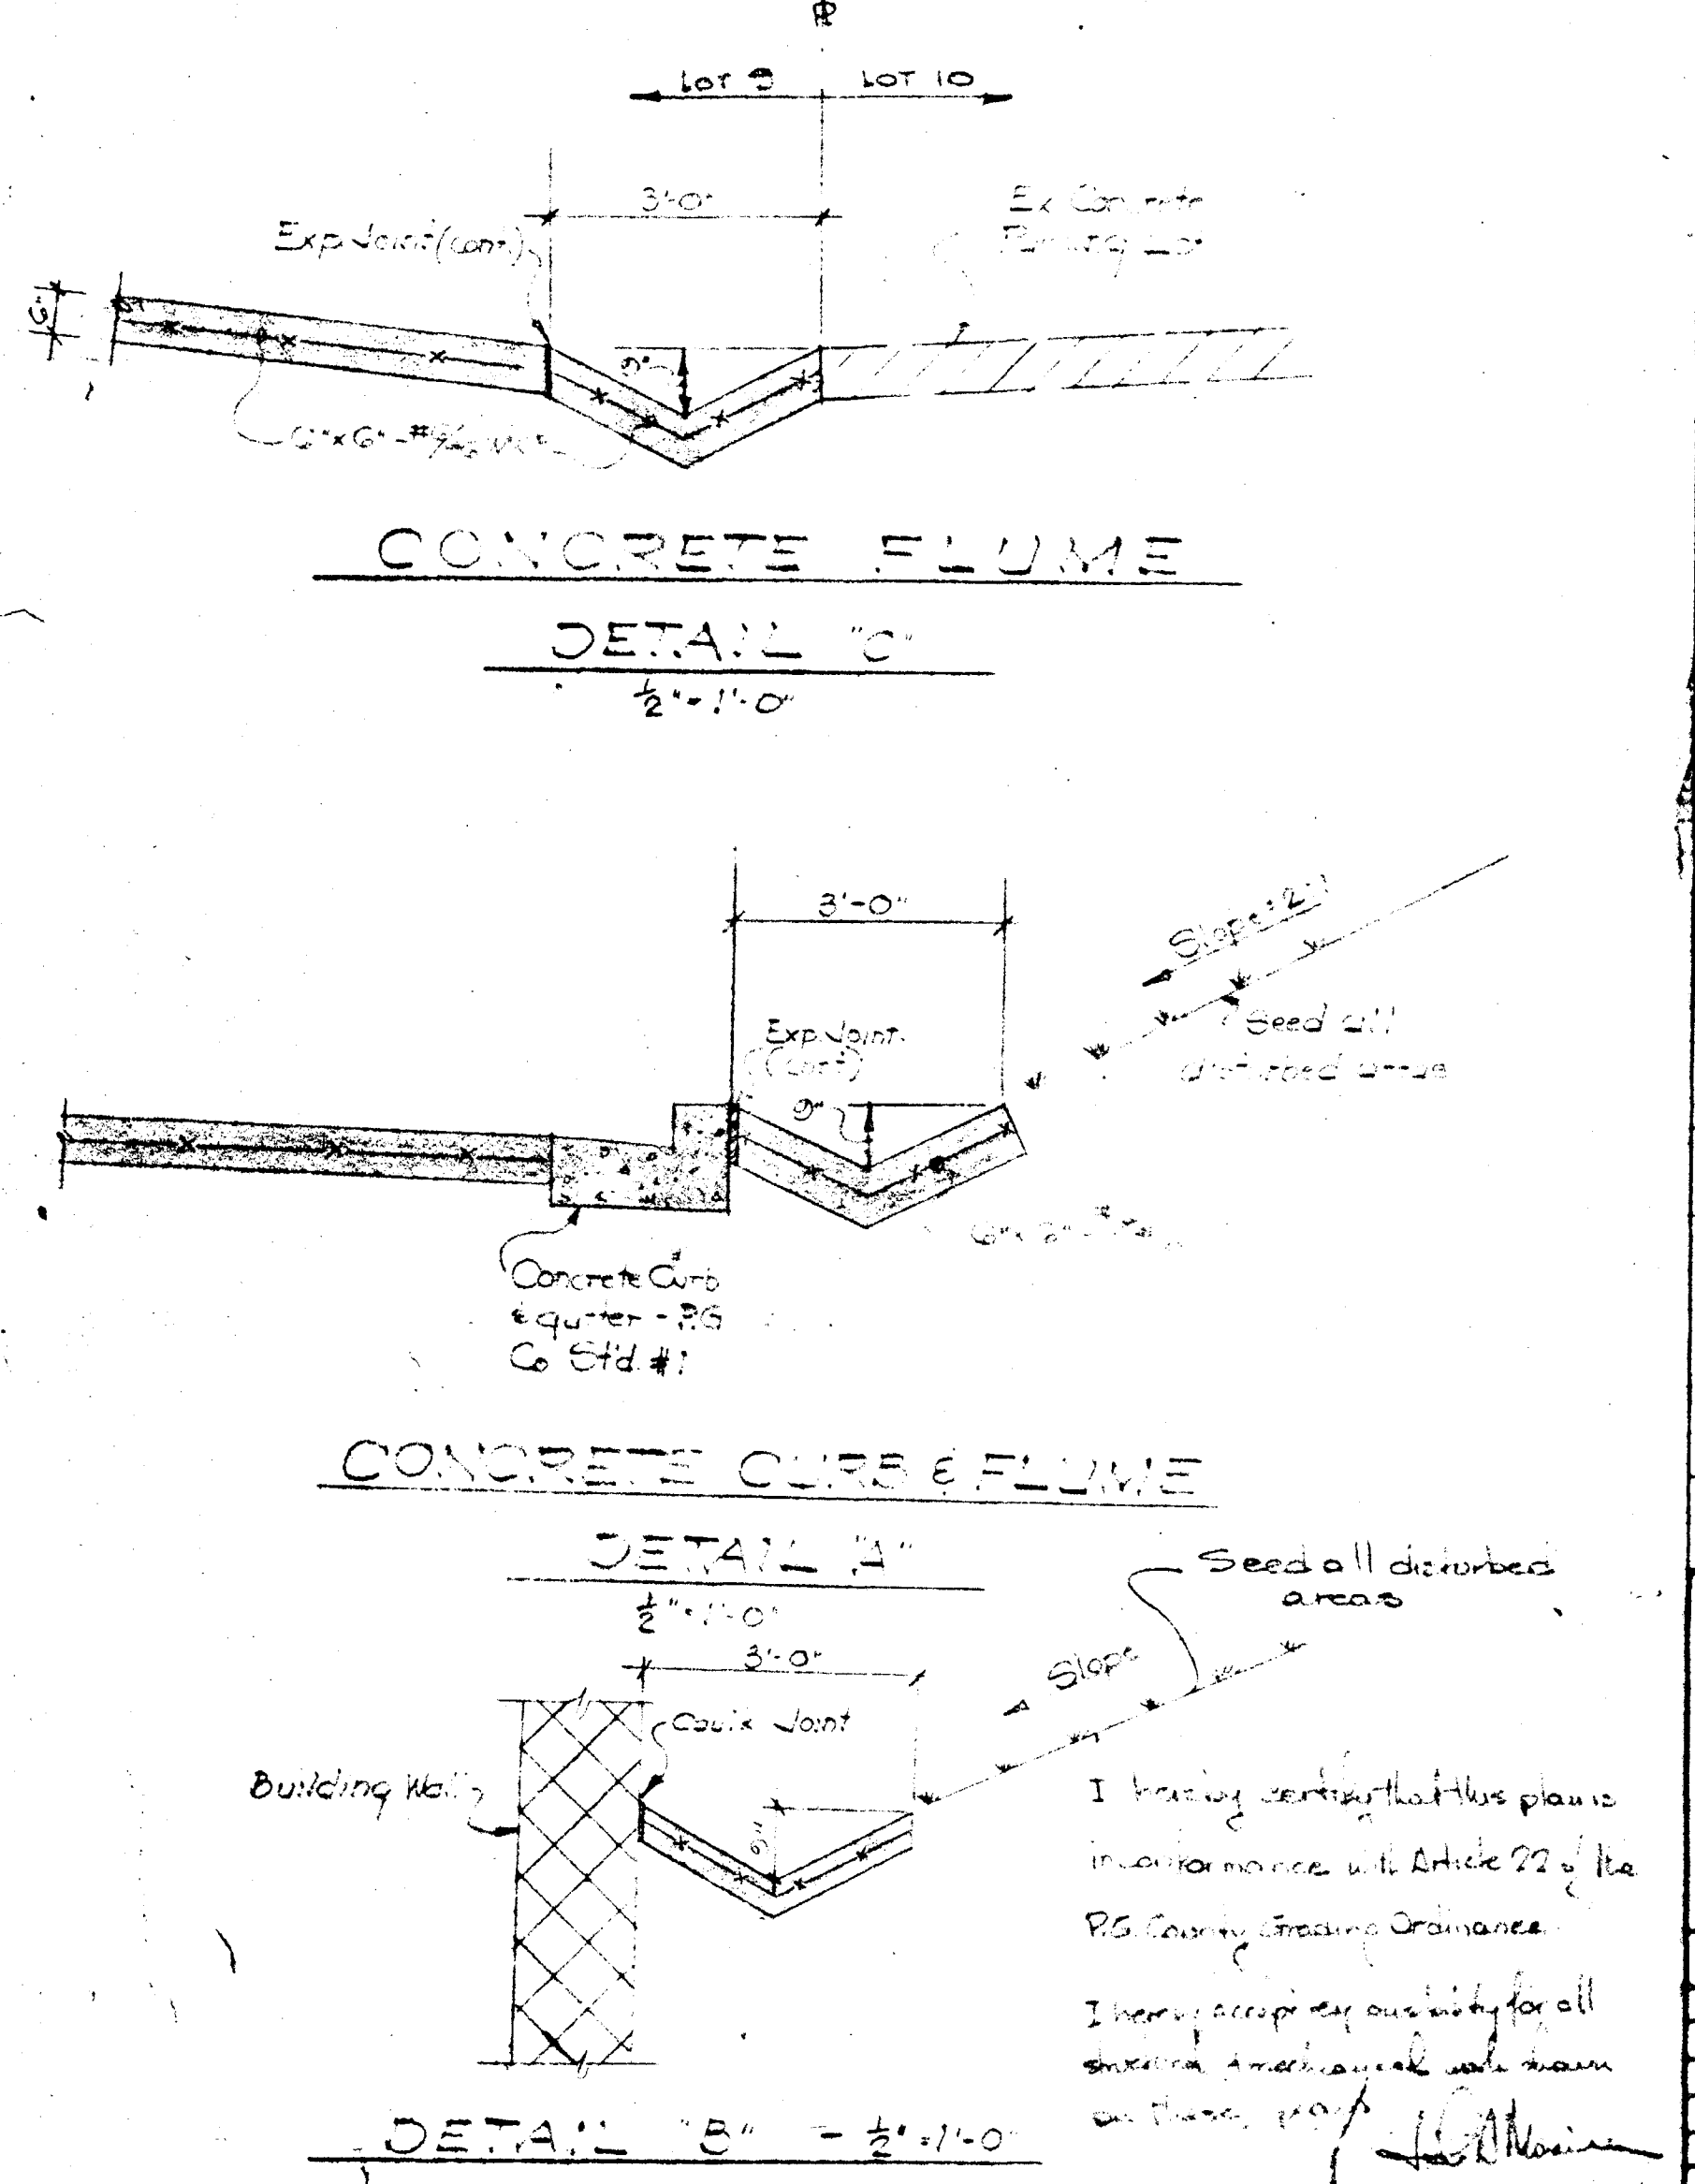 LOT 9 LOT 10
3'-0"
Ex Concrete
Parking Lot
Exp. Joint (cont.)
6"
9"
6" x 6" - #
CONCRETE FLUME
DETAIL "C"
½" = 1'-0"
3'-0"
Slope 2:1
Seed all
disturbed areas
Exp. Joint
(cont)
9"
Concrete Curb
& gutter - P.G.
Co Std. #1
CONCRETE CURB & FLUME
DETAIL "A"
½" = 1'-0"
Seed all disturbed
areas
3'-0"
Slope
Caulk Joint
Building Wall
I hereby certify that this plan is
in conformance with Article 22 of the
P.G. County Grading Ordinance.
I hereby accept responsibility for all
structural & mechanical work shown
on these plans
DETAIL "B" - ½" = 1'-0"